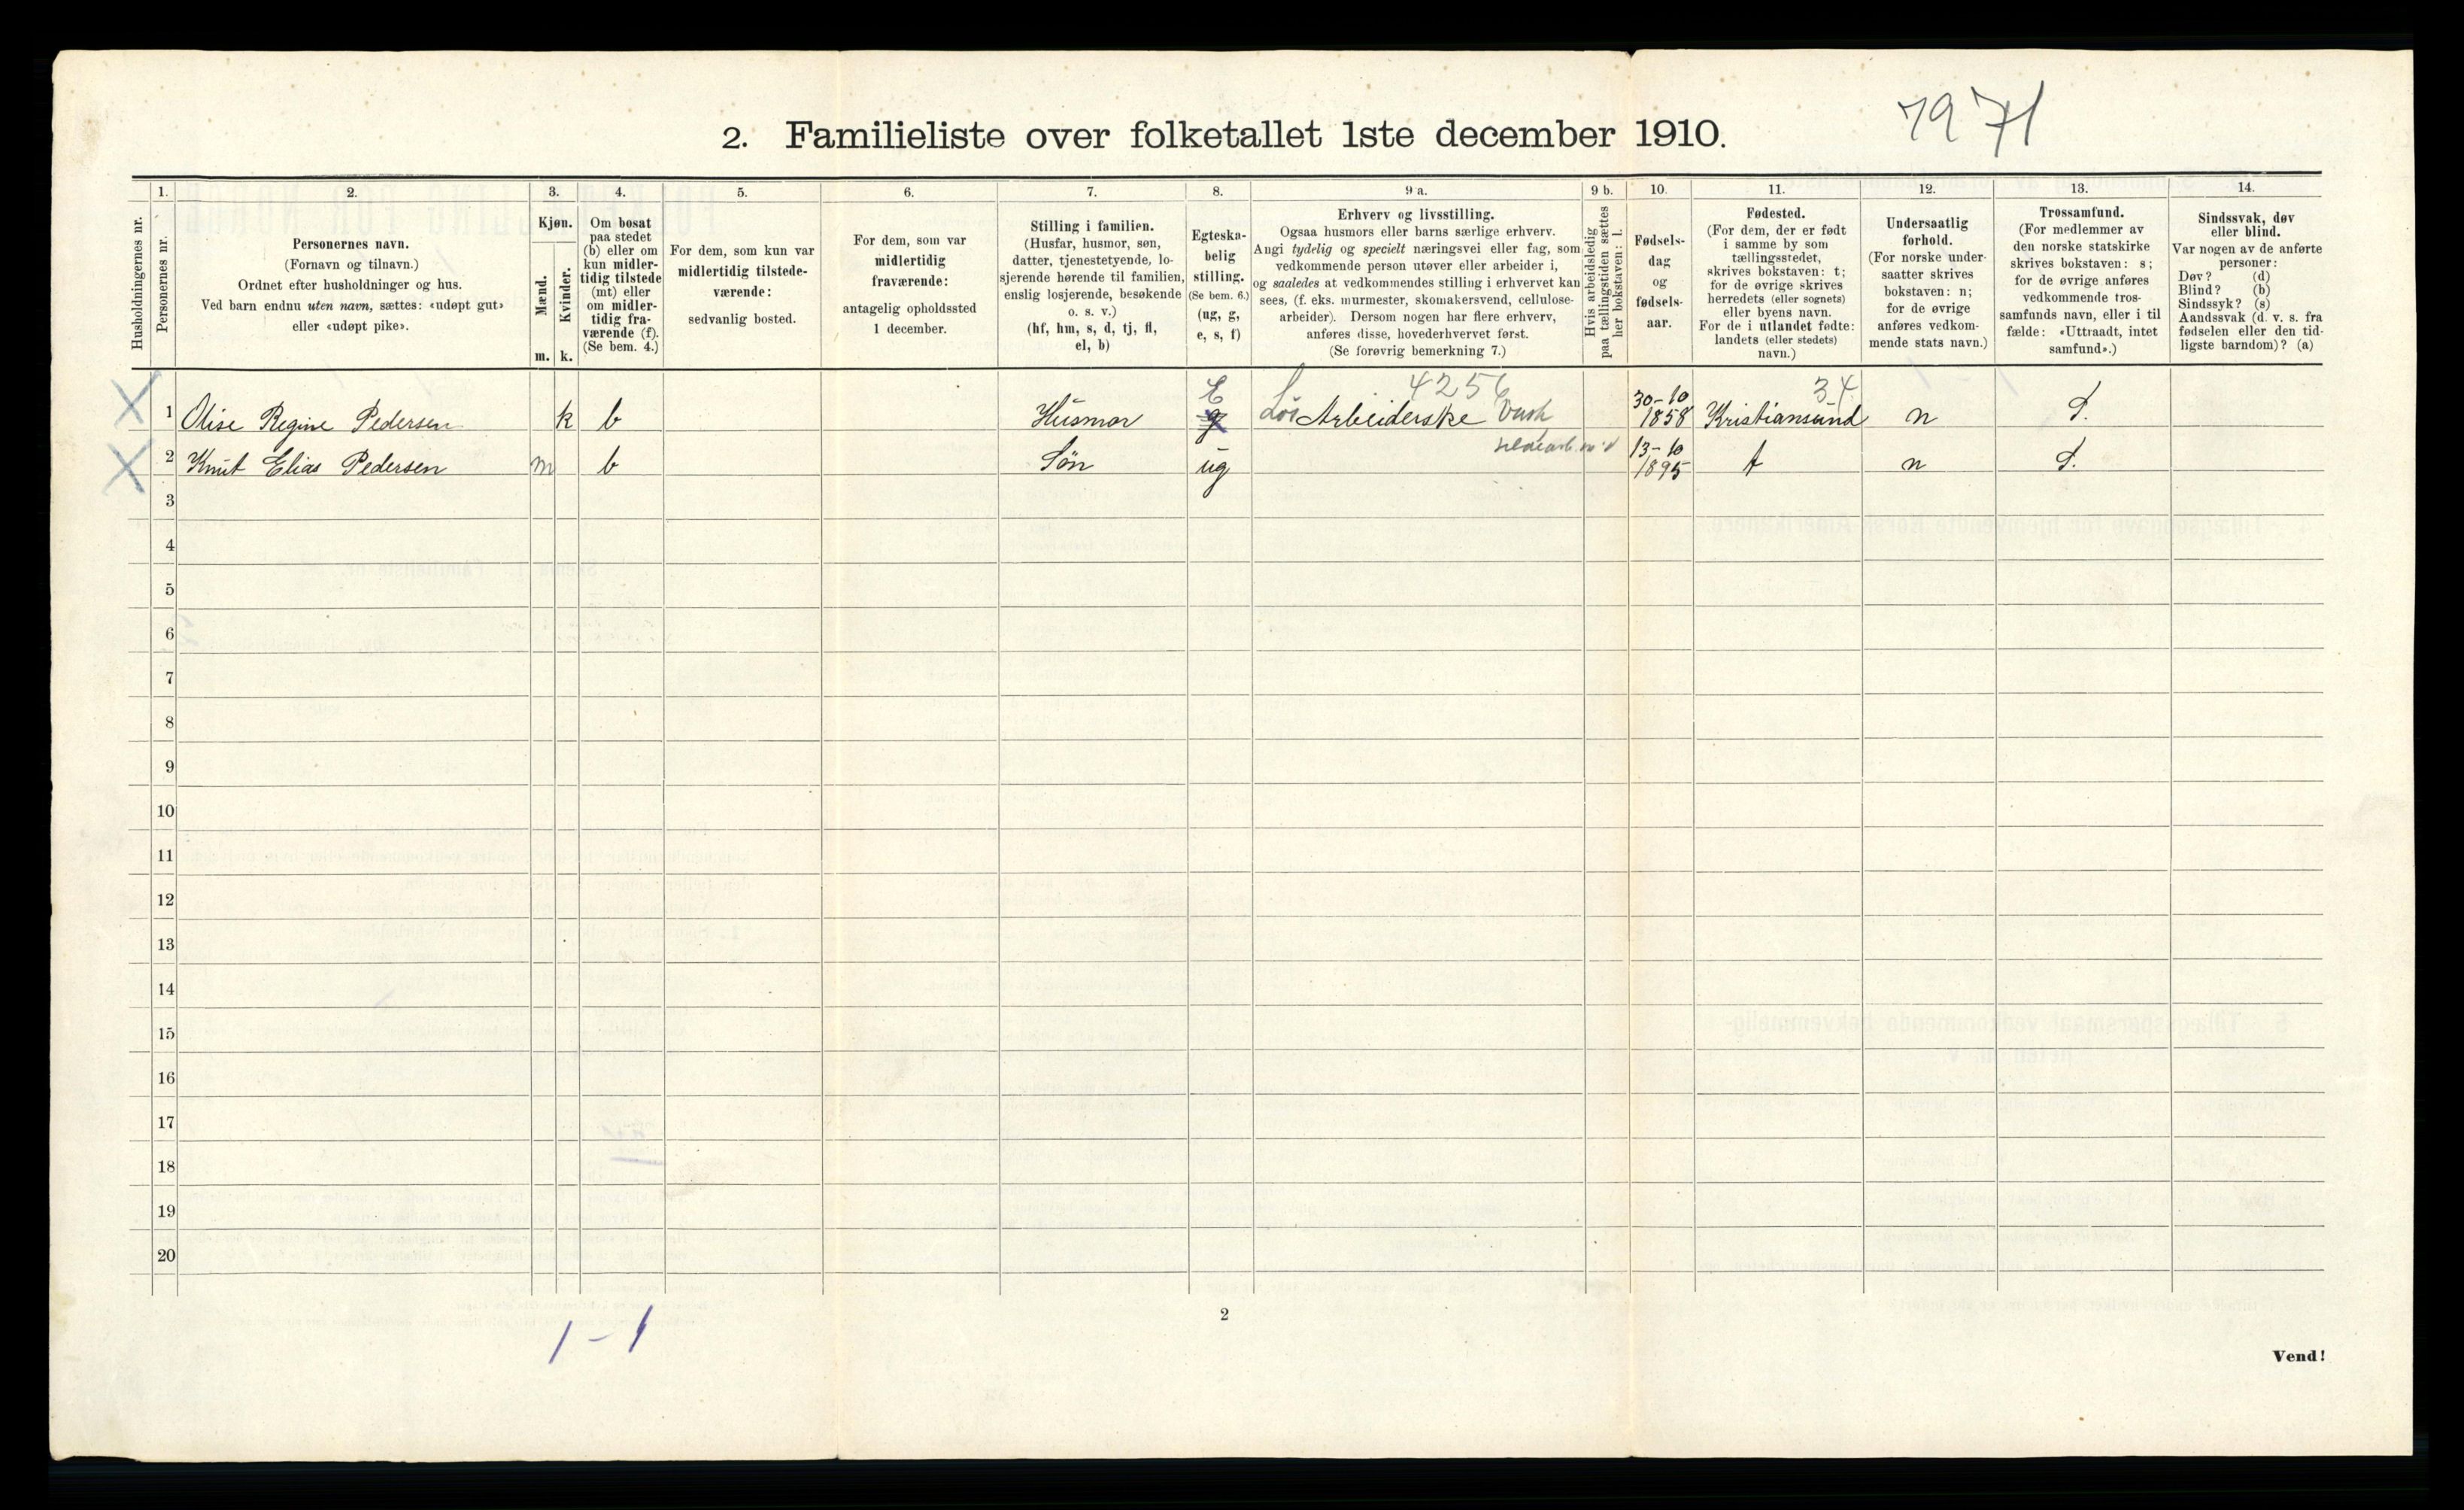 7971
2. Familieliste over folketallet 1ste december 1910.
Husholdningernes nr.
1.
Personernes nr.
2.
Personernes navn.
(Fornavn og tilnavn.)
Ordnet efter husholdninger og hus.
Ved barn endnu uten navn, sættes: «udøpt gut»
eller «udøpt pike».
3.
Kjøn.
Mænd.
Kvinder.
m. k.
4.
Om bosat
paa stedet
(b) eller om
kun midler-
tidig tilstede
(mt) eller
om midler-
tidig fra-
værende (f).
(Se bem. 4.)
5.
For dem, som kun var
midlertidig tilstede-
værende:
sedvanlig bosted.
6.
For dem, som var
midlertidig
fraværende:
antagelig opholdssted
1 december.
7.
Stilling i familien.
(Husfar, husmor, søn,
datter, tjenestetyende, lo-
sjerende hørende til familien,
enslig losjerende, besøkende
o. s. v.)
(hf, hm, s, d, tj, fl,
el, b)
8.
Egteska-
belig
stilling.
(Se bem. 6.)
(ug, g,
e, s, f)
9 a.
Erhverv og livsstilling.
Ogsaa husmors eller barns særlige erhverv.
Angi tydelig og specielt næringsvei eller fag, som
vedkommende person utøver eller arbeider i,
og saaledes at vedkommendes stilling i erhvervet kan
sees, (f. eks. murmester, skomakersvend, cellulose-
arbeider). Dersom nogen har flere erhverv,
anføres disse, hovederhvervet først.
(Se forøvrig bemerkning 7.)
9 b.
Hvis arbeidsledig
paa tællingstiden sættes
her bokstaven: l.
10.
Fødsels-
dag
og
fødsels-
aar.
11.
Fødested.
(For dem, der er født
i samme by som
tællingsstedet,
skrives bokstaven: t;
for de øvrige skrives
herredets (eller sognets)
eller byens navn.
For de i utlandet fødte:
landets (eller stedets)
navn.)
12.
Undersaatlig
forhold.
(For norske under-
saatter skrives
bokstaven: n;
for de øvrige
anføres vedkom-
mende stats navn.)
13.
Trossamfund.
(For medlemmer av
den norske statskirke
skrives bokstaven: s;
for de øvrige anføres
vedkommende tros-
samfunds navn, eller i til
fælde: «Uttraadt, intet
samfund».)
14.
Sindssvak, døv
eller blind.
Var nogen av de anførte
personer:
Døv? (d)
Blind? (b)
Sindssyk? (s)
Aandssvak (d. v. s. fra
fødselen eller den tid-
ligste barndom)? (a)
E 4256 34
X 1 Olise Regine Pedersen k b Husmor g Løs Arbeiderske 30-10 1858 Kristiansund n S.
X 2 Knut Elias Pedersen m b Søn ug 13-10 1895 t n S.
3
4
5
6
7
8
9
10
11
12
13
14
15
16
17
18
19
20
1 - 1
2
Vend!